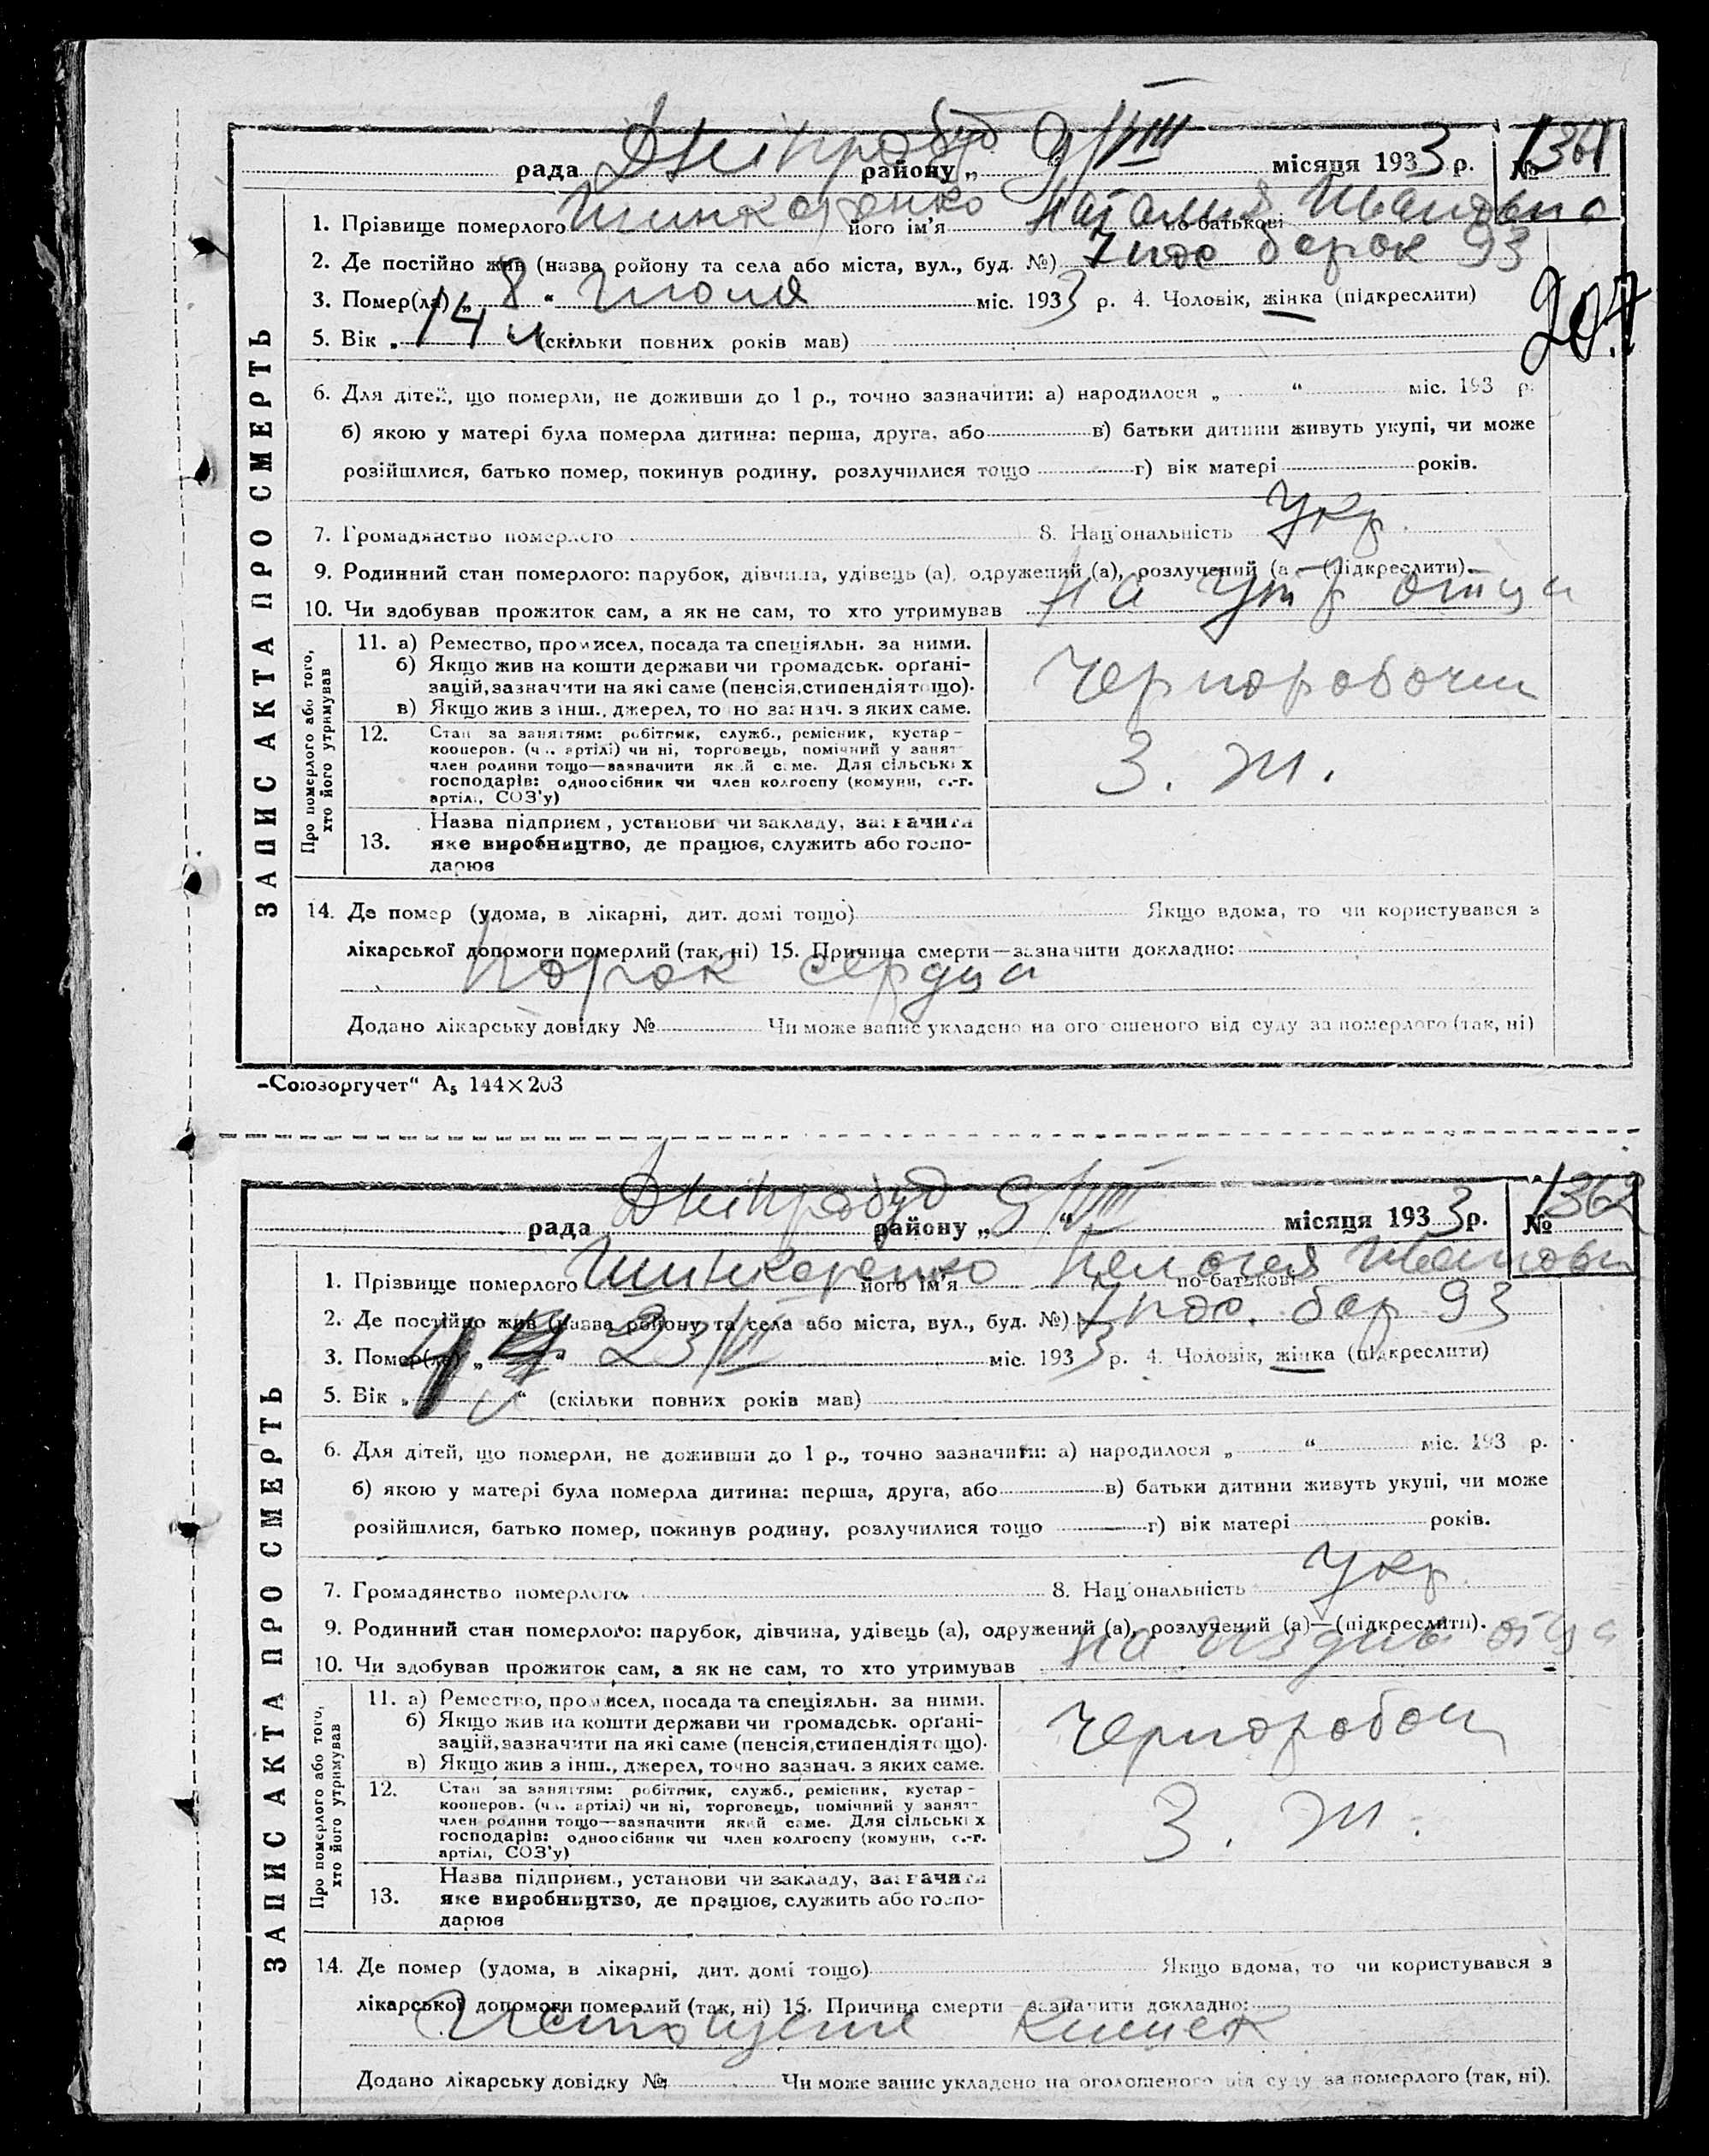 Дніпробуд 9/VIII
рада районy „ “ місяця 1933 р. № 1361
1. Прізвище померлого Шинкаренко його ім'я Наталия по-батькові Ивановна
2. Де постійно жив (назва району та села або міста, вул., буд. №) 7 пос барак 93
3. Помер(ла) „ 8 “ Июля міс. 1933 р. 4. Чоловік, жінка (підкреслити)
207
5. Вік „ 14 л (скільки повних років мав)
6. Для дітей, що померли, не доживши до 1 р., точно зазначити: а) народилося „ “ міс. 193 р.
б) якою у матері була померла дитина: перша, друга, або в) батьки дитини живуть укупі, чи може
розійшлися, батько помер, покинув родину, розлучилися тощо г) вік матері років.
7. Громадянство померлого 8. Національність Укр.
9. Родинний стан померлого: парубок, дівчина, удівець (а), одружений (а), розлучений (а)—(підкреслити).
10. Чи здобував прожиток сам, а як не сам, то хто утримував на утр отца
ЗАПИС АКТА ПРО СМЕРТЬ
Про померлого або того, хто його утримував
11. а) Ремество, промисел, посада та спеціяльн. за ними.
б) Якщо жив на кошти держави чи громадськ. органі-
зацій, зазначити на які саме (пенсія, стипендія тощо).
в) Якщо жив з інш., джерел, точно зазнач. з яких саме.
Чернорабочий
12. Стан за заняттям: робітник, служб., ремісник, кустар-
кооперов. (ч.. артілі) чи ні, торговець, помічний у занят-
член родини тощо—зазначити який саме. Для сільських
господарів: одноосібник чи член колгоспу (комуни, с.-г.
артілі, СОЗ'у)
З. Ж.
13. Назва підприєм., установи чи закладу, зазначити
яке виробництво, де працює, служить або госпо-
дарює
14. Де помер (удома, в лікарні, дит. домі тощо) Якщо вдома, то чи користувався з
лікарської допомоги померлий (так, ні) 15. Причина смерти—зазначити докладно:
Порок сердца
Додано лікарську довідку № Чи може запис укладено на оголошеного від суду за померлого (так, ні)
-Союзоргучет“ А₅ 144×203
Дніпробуд 9/VIII
рада району „ “ місяця 1933 р. № 1362
1. Прізвище померлого Шинкаренко його ім'я Пелагея по-батькові Иванови
2. Де постійно жив (назва району та села або міста, вул., буд. №) 7 пос. бар 93
3. Помер(ла) „ “ 23/VI міс. 1933 р. 4. Чоловік, жінка (підкреслити)
5. Вік „ “ (скільки повних років мав)
6. Для дітей, що померли, не доживши до 1 р., точно зазначити: а) народилося „ “ міс. 193 р.
б) якою у матері була померла дитина: перша, друга, або в) батьки дитини живуть укупі, чи може
розійшлися, батько помер, покинув родину, розлучилися тощо г) вік матері років.
7. Громадянство померлого 8. Національність Укр
9. Родинний стан померлого: парубок, дівчина, удівець (а), одружений (а), розлучений (а)—(підкреслити).
10. Чи здобував прожиток сам, а як не сам, то хто утримував на иждив отца
ЗАПИС АКТА ПРО СМЕРТЬ
Про померлого або того, хто його утримував
11. а) Ремество, промисел, посада та спеціяльн. за ними.
б) Якщо жив на кошти держави чи громадськ. органі-
зацій, зазначити на які саме (пенсія, стипендія тощо).
в) Якщо жив з інш., джерел, точно зазнач. з яких саме.
Чернорабоч
12. Стан за заняттям: робітник, служб., ремісник, кустар-
кооперов. (ч.. артілі) чи ні, торговець, помічний у занят-
член родини тощо—зазначити який саме. Для сільських
господарів: одноосібник чи член колгоспу (комуни, с.-г.
артілі, СОЗ'у)
З. Ж.
13. Назва підприєм., установи чи закладу, зазначити
яке виробництво, де працює, служить або госпо-
дарює
14. Де помер (удома, в лікарні, дит. домі тощо) Якщо вдома, то чи користувався з
лікарської допомоги померлий (так, ні) 15. Причина смерти—зазначити докладно:
Кишек
Додано лікарську довідку № Чи може запис укладено на оголошеного від суду за померлого (так, ні).